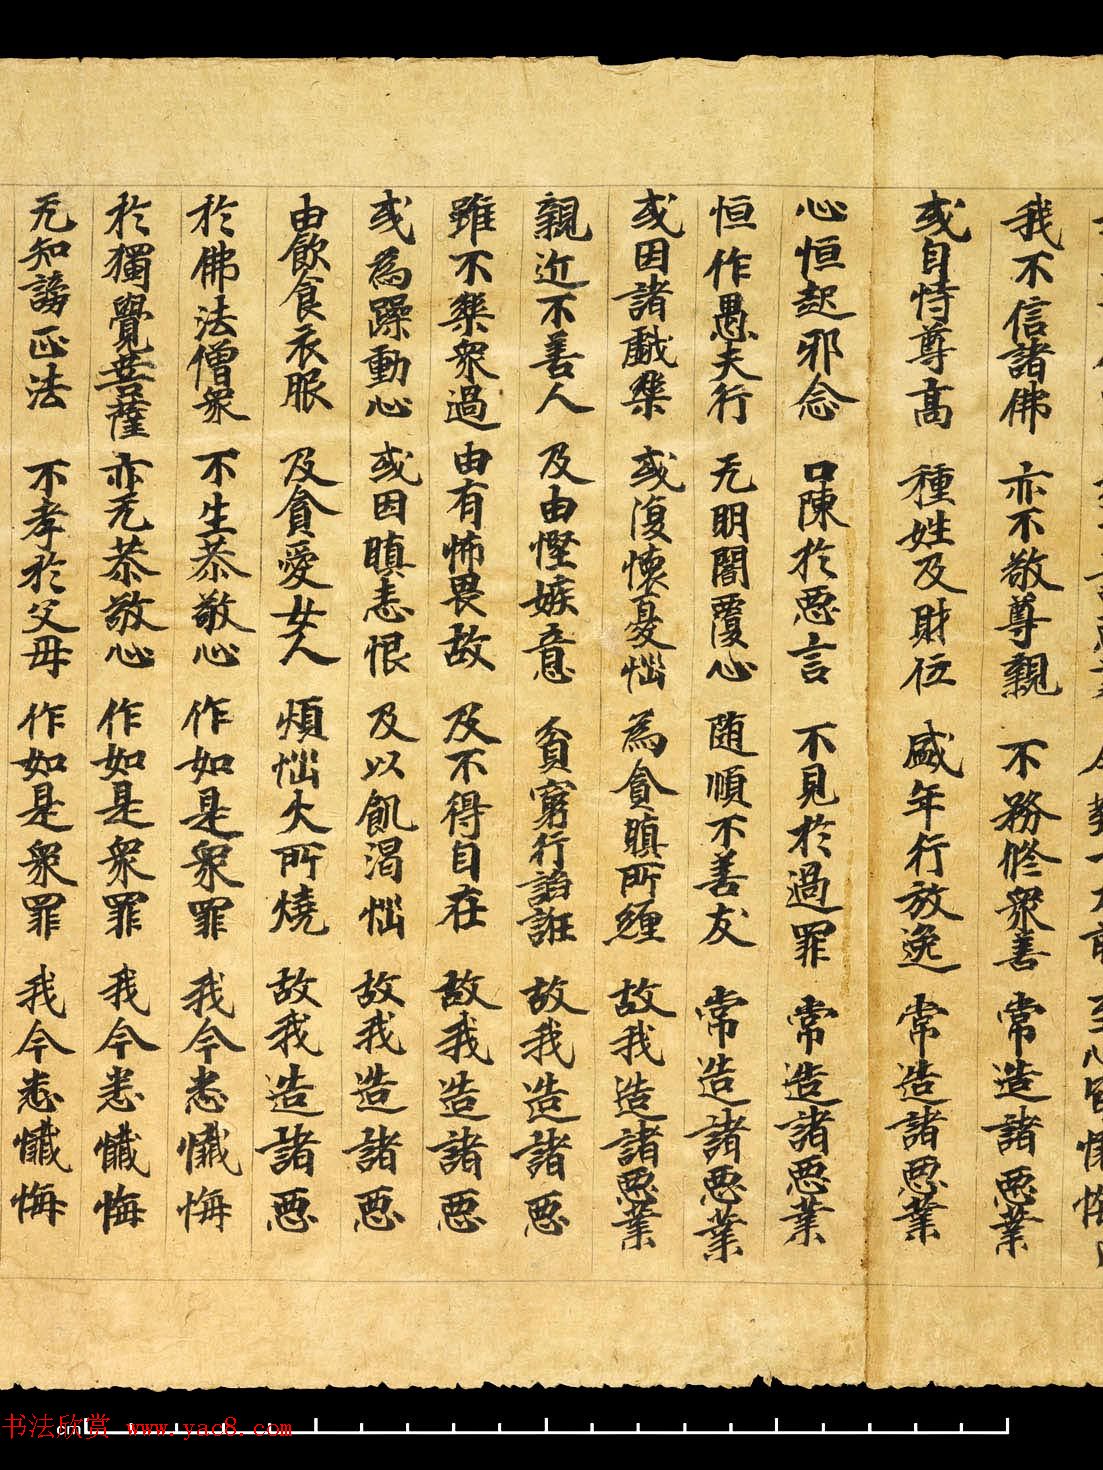 我不信諸佛 亦不敬尊親 不務修衆善 常造諸惡業
或自恃尊高 種姓及財位 盛年行放逸 常造諸惡業
心恒起邪念 口陳於惡言 不見於過罪 常造諸惡業
恒作愚夫行 无明闇覆心 随順不善友 常造諸惡業
或因諸戲樂 或復懷憂惱 為貪瞋所纏 故我造諸惡業
親近不善人 及由慳嫉意 貧窮行諂誑 故我造諸惡
雖不樂衆過 由有怖畏故 及不得自在 故我造諸惡
或為躁動心 或因瞋恚恨 及以飢渴惱 故我造諸惡
由飲食衣服 及貪愛女人 煩惱火所燒 故我造諸惡
於佛法僧衆 不生恭敬心 作如是衆罪 我今悉懺悔
於獨覺菩薩 亦无恭敬心 作如是衆罪 我今悉懺悔
无知謗正法 不孝於父母 作如是衆罪 我今悉懺悔
书法欣赏 www.yac8.com
cm